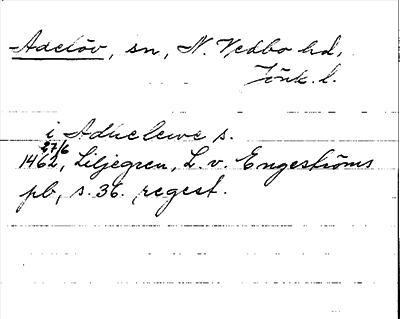 Adelöv, sn, N. Vedbo hd,
Jönk. l.
i Aduelewe s.
27/6
1462, Liljegren, L. v. Engeströms
pb, s. 36. regest.